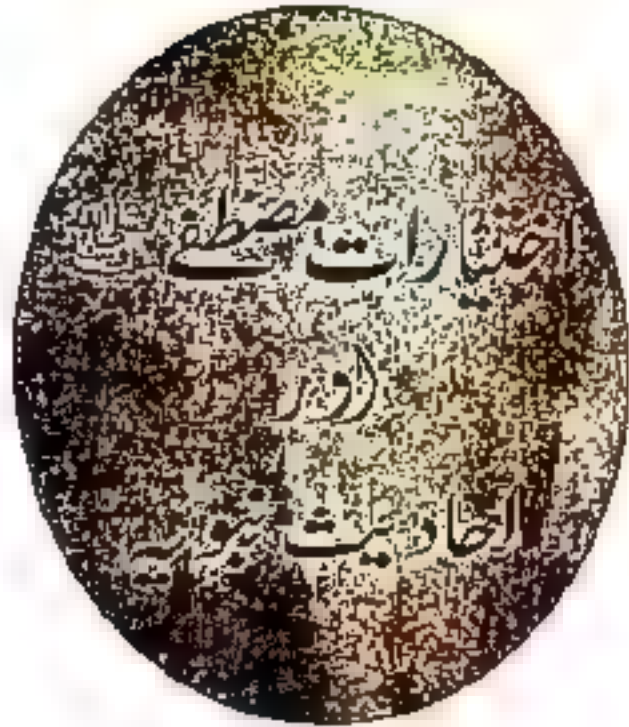 اختیارات مصطفےٰ
اور
احادیث نبویہ